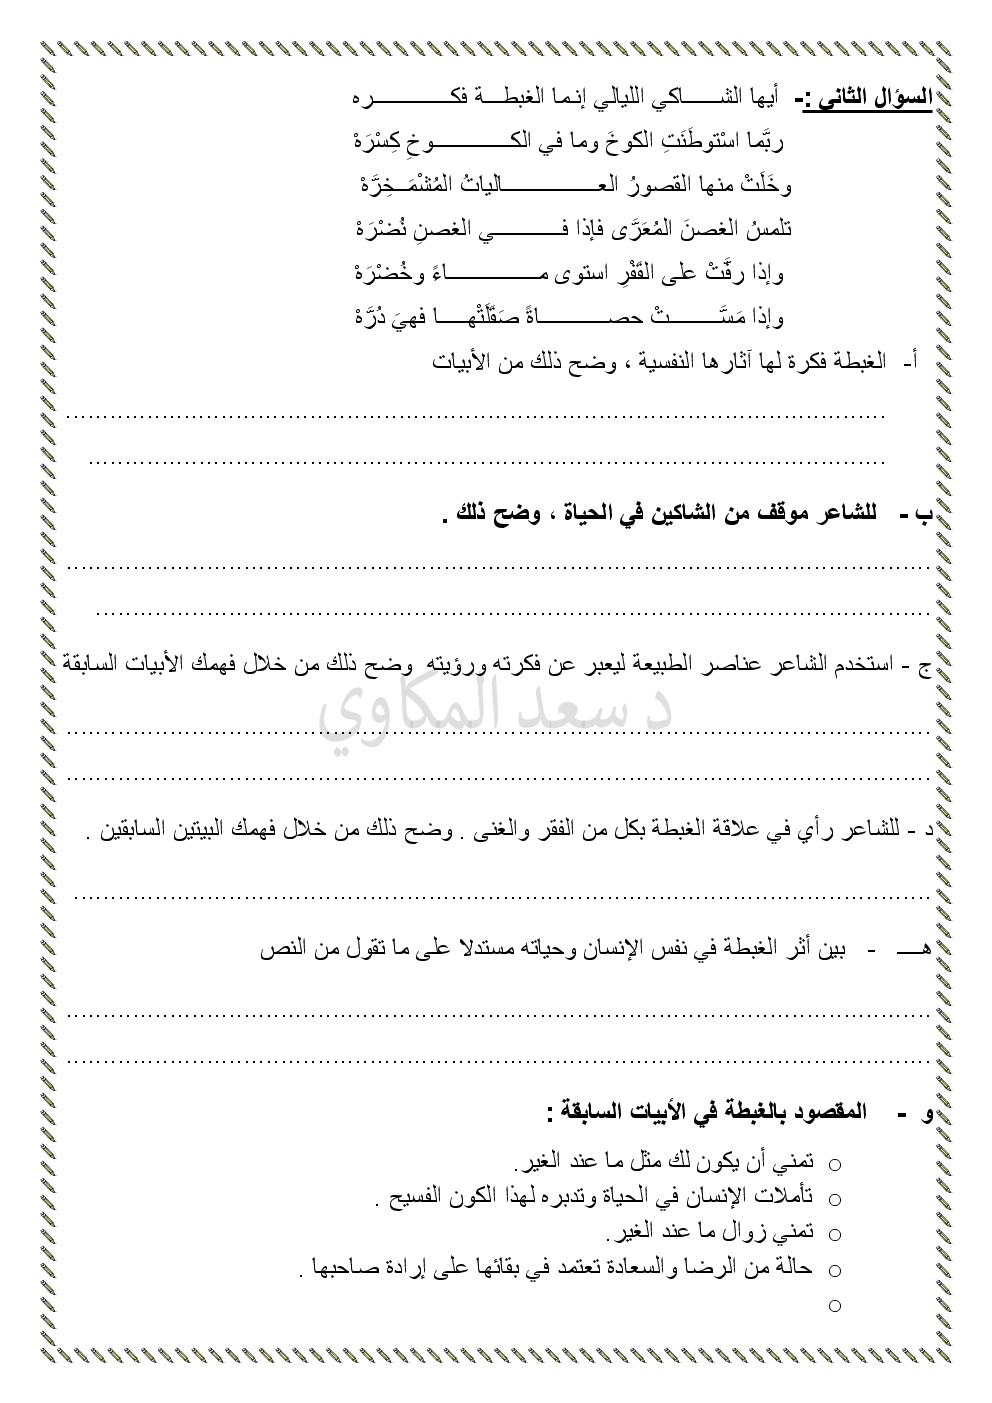 السؤال الثاني :- أيها الشـــــاكي الليالي إنـما الغبطـــة فكـــــــــــره
ربَّما اسْتوطَنَتِ الكوخَ وما في الكـــــــــــوخِ كِسْرَهْ
وخَلَتْ منها القصورُ العـــــــــــــالياتُ المُشْمَــخِرَّهْ
تلمسُ الغصنَ المُعَرَّى فإذا فـــــــــي الغصنِ نُضْرَهْ
وإذا رفَّتْ على القَفْرِ استوى مـــــــــــــاءً وخُضْرَهْ
وإذا مَسَّـــــــتْ حصــــــــــاةً صَقَلَتْهـــــا فهيَ دُرَّهْ
أ- الغبطة فكرة لها آثارها النفسية ، وضح ذلك من الأبيات
ب - للشاعر موقف من الشاكين في الحياة ، وضح ذلك .
ج - استخدم الشاعر عناصر الطبيعة ليعبر عن فكرته ورؤيته وضح ذلك من خلال فهمك الأبيات السابقة
د سعد المكاوي
د - للشاعر رأي في علاقة الغبطة بكل من الفقر والغنى . وضح ذلك من خلال فهمك البيتين السابقين .
هــــ - بين أثر الغبطة في نفس الإنسان وحياته مستدلا على ما تقول من النص
و - المقصود بالغبطة في الأبيات السابقة :
○ تمني أن يكون لك مثل ما عند الغير.
○ تأملات الإنسان في الحياة وتدبره لهذا الكون الفسيح .
○ تمني زوال ما عند الغير.
○ حالة من الرضا والسعادة تعتمد في بقائها على إرادة صاحبها .
○